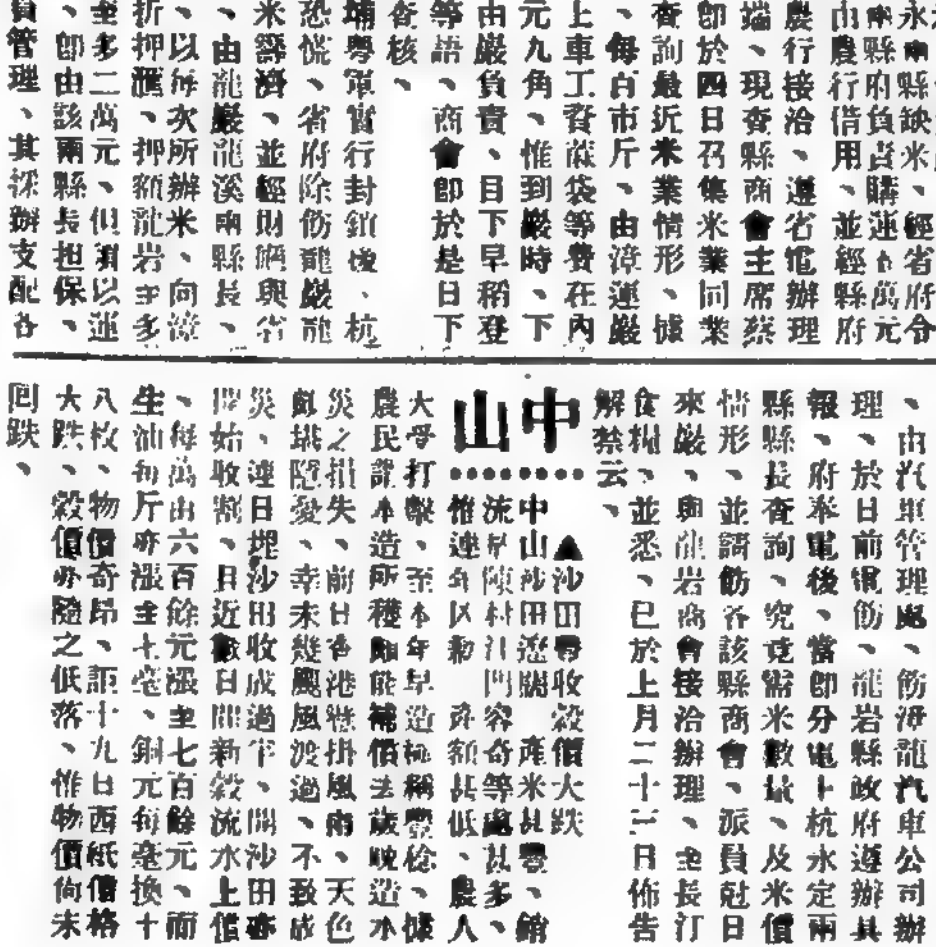 永兩縣缺米、經省府令
兩縣府負責購運七萬元
由農行借用、並經縣府
農行接洽、遵省電辦理
端、現查縣商會主席蔡
即於四日召集米業同業
查詢最近米業情形、據
、每百市斤、由漳運巖
上車工資蔴袋等費在內
元九角、惟到巖時、下
由巖負責、目下早稻登
等語、商會即於是日下
查核、
埔粵軍實行封鎖後、杭
恐慌、省府除飭龍巖龍
米濟、並經財廳與省
、由龍巖龍溪兩縣長、
、以每次所辦米、向漳
折押匯、押額龍岩至多
至多二萬元、但須以運
、即由該兩縣長担保、
負管理、其採辦支配各
、由汽車管理處、飭漳龍汽車公司辦
理、於日前電飭、龍岩縣政府遵辦具
報、府奉電後、當即分電上杭永定兩
縣縣長查詢、究竟需米數量、及米價
情形、並請飭各該縣商會、派員尅日
來巖、與龍岩商會接洽辦理、至長汀
食糧、並悉、已於上月二十三日佈告
解禁云、
中山
▲沙田豐收穀價大跌
中山沙田遼闊 產米甚豐、銷
流於陳村江門容奇等處甚多、
惟連年以來 產額甚低、農人
大受打擊、至本年早造極稱豐稔、據
農民謂本造所穫雖能補償去歲晚造水
災之損失、前日香港懸掛風雨、天色
頗堪隱憂、幸未幾颶風渡過、不致成
災、連日埋沙田收成過半、關沙田亦
開始收割、日近數日間新穀流水上價
、每萬由六百餘元漲至七百餘元、而
生油每斤亦漲至十毫、銅元每毫換十
八枚、物價奇昂、詎十九日西紙價格
大跌、穀價亦隨之低落、惟物價尚未
回跌、